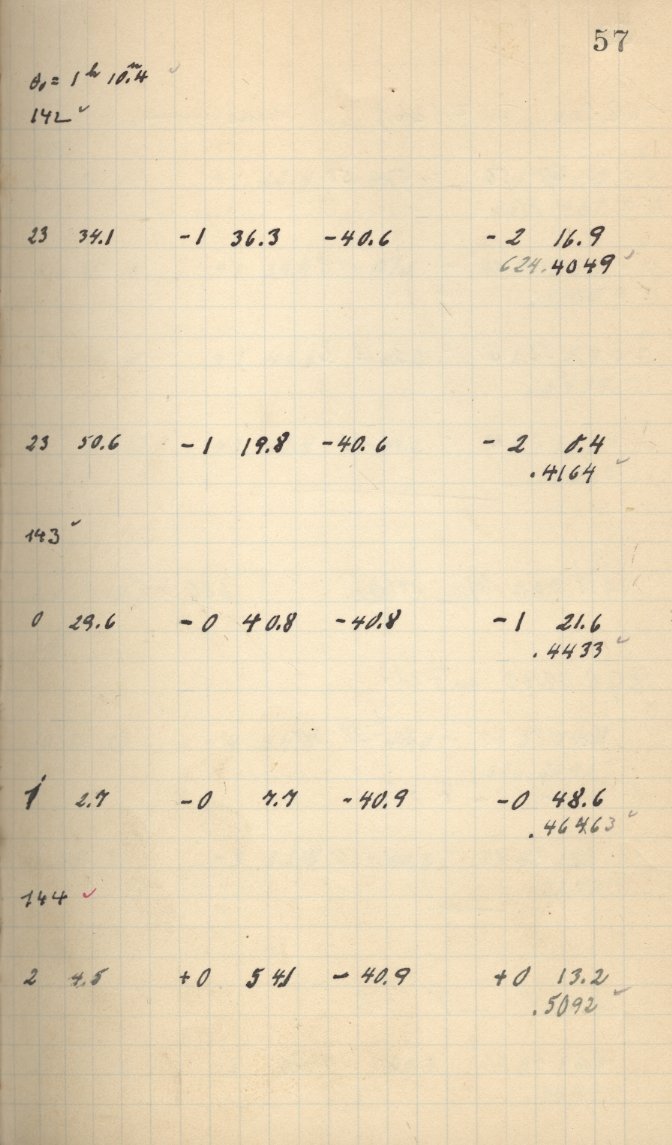 57
θ₀ = 1ʰ 10ᵐ.4 ✓
142 ✓
23 34.1 -1 36.3 -40.6 -2 16.9
624.4049 ✓
23 50.6 -1 19.8 -40.6 -2 0.4
.4164 ✓
143 ✓
0 29.6 -0 40.8 -40.8 -1 21.6
.4433 ✓
1 2.7 -0 7.7 -40.9 -0 48.6
.46463 ✓
144 ✓
2 4.5 +0 54.1 -40.9 +0 13.2
.5092 ✓